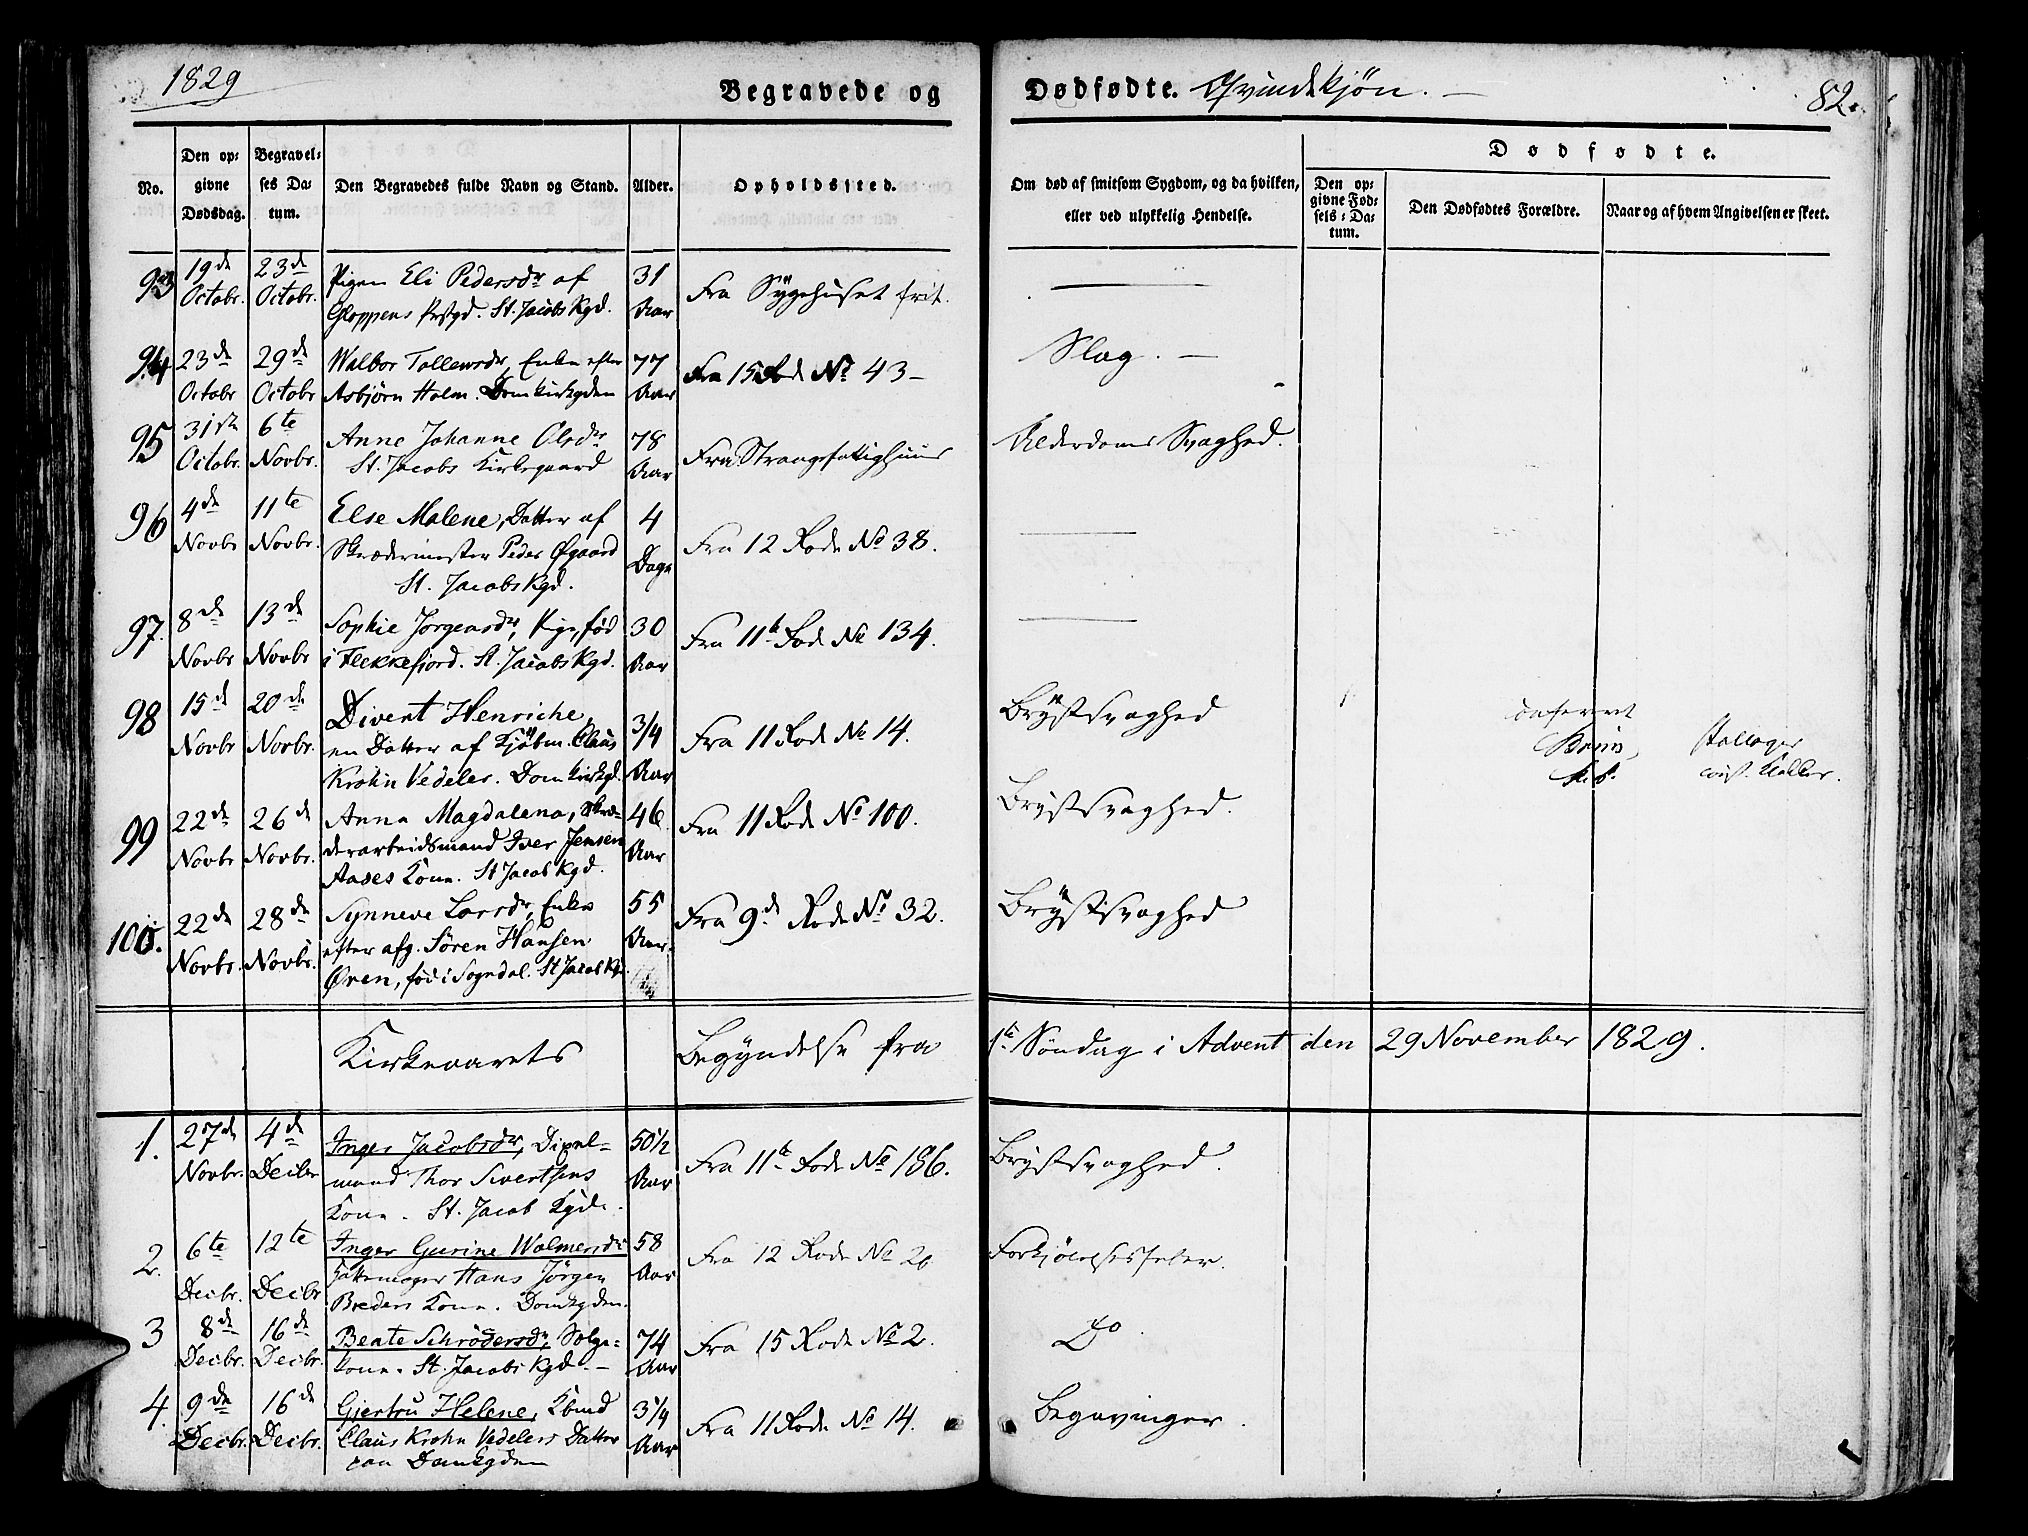 1829
Begravede og
Dødfødte. Qvindekjøn. —
82.
No.
Den opgivne Dødsdag.
Begravelses Datum.
Den Begravedes fulde Navn og Stand.
Alder.
Opholdssted.
Om død af smitsom Sygdom, og da hvilken,
eller ved ulykkelig Hendelse.
Dødfødte.
Den opgivne Fødsels-Datum.
Den Dødfødtes Forældre.
Naar og af hvem Angivelsen er skeet.
93 19de Octobr. 23de Octobr. Pigen Eli Pedersdr af 31 Aar Fra Sygehuset frit. —
Gloppens Prstgd. St. Jacobs Kgd.
94 23de Octobr 29de Octobr Walbor Tollewsdr, Enke efter 77 Aar Fra 15 Rode No 43 – Slag. —
Asbjørn Holm. Domkirkgden
95 31te Octobr. 6te Novbr. Anne Johanne Olsdr 78 Aar Fra Strangesfatighuus Alderdoms Svaghed.
St. Jacobs Kirkegaard
96 4de Novbr 11te Novbr. Else Malene, Datter af 4 Dage Fra 12 Rode No 38. —
Skrædermester Peder Øgaard
St. Jacobs Kgd.
97. 8de Novbr 13de Novbr Sophie Jørgensdr, Pige, fød 30 Aar Fra 11te Rode No 134. —
i Flekkefjord. St. Jacobs Kgd.
98 15de Novbr 20de Novbr. Divert Henriche, 3/4 Aar Fra 11 Rode No 14. Brystsvaghed
en Datter af Kjøbm. Claus
Krohn Vedeler. Domkirkgd.
99 22de Novbr 26de Novbr. Anna Magdalena, Skræ- 46 Aar Fra 11 Rode No 100. Brystsvaghed.
derarbeidsmand Iver Jensen
Aases Kone. St Jacob Kgd.
100. 22de Novbr. 28de Novbr. Synneve Larsdr, Enke 55 Aar. Fra 9de Rode No 32. Brystsvaghed
efter afg. Søren Hansen
Øren, fød i Sogndal. St Jacob Kg.
Kirkeaarets Begyndelse fra 1te Søndag i Advent den 29 November 1829.
1. 27de Novbr. 4de Decbr Inger Jacobsdr, 50 1/2 Aar Fra 11te Rode No 186. Brystsvaghed.
mand Thor Sivertsens
Kone. St. Jacob Kgde.
2. 6te Decbr. 12te Decbr Inger Gurine Wolmersdr 58 Aar Fra 12 Rode No 20 Forkjølelsesfeber.
Hattemager Hans Jørgen
Breders Kone. Domkgden.
3 8de Decbr. 16de Decbr. Beate Schrødersdr, 74 Aar Fra 15 Rode No 2. Do.
kone. St. Jacobs Kgd. —
4. 9de Decbr. 16de Decbr. Gjertru Helene, Kbmd 3 1/4 Aar Fra 11 Rode No 14. Begavinger.
Claus Krohn Vedelers Datter
paa Domkgden